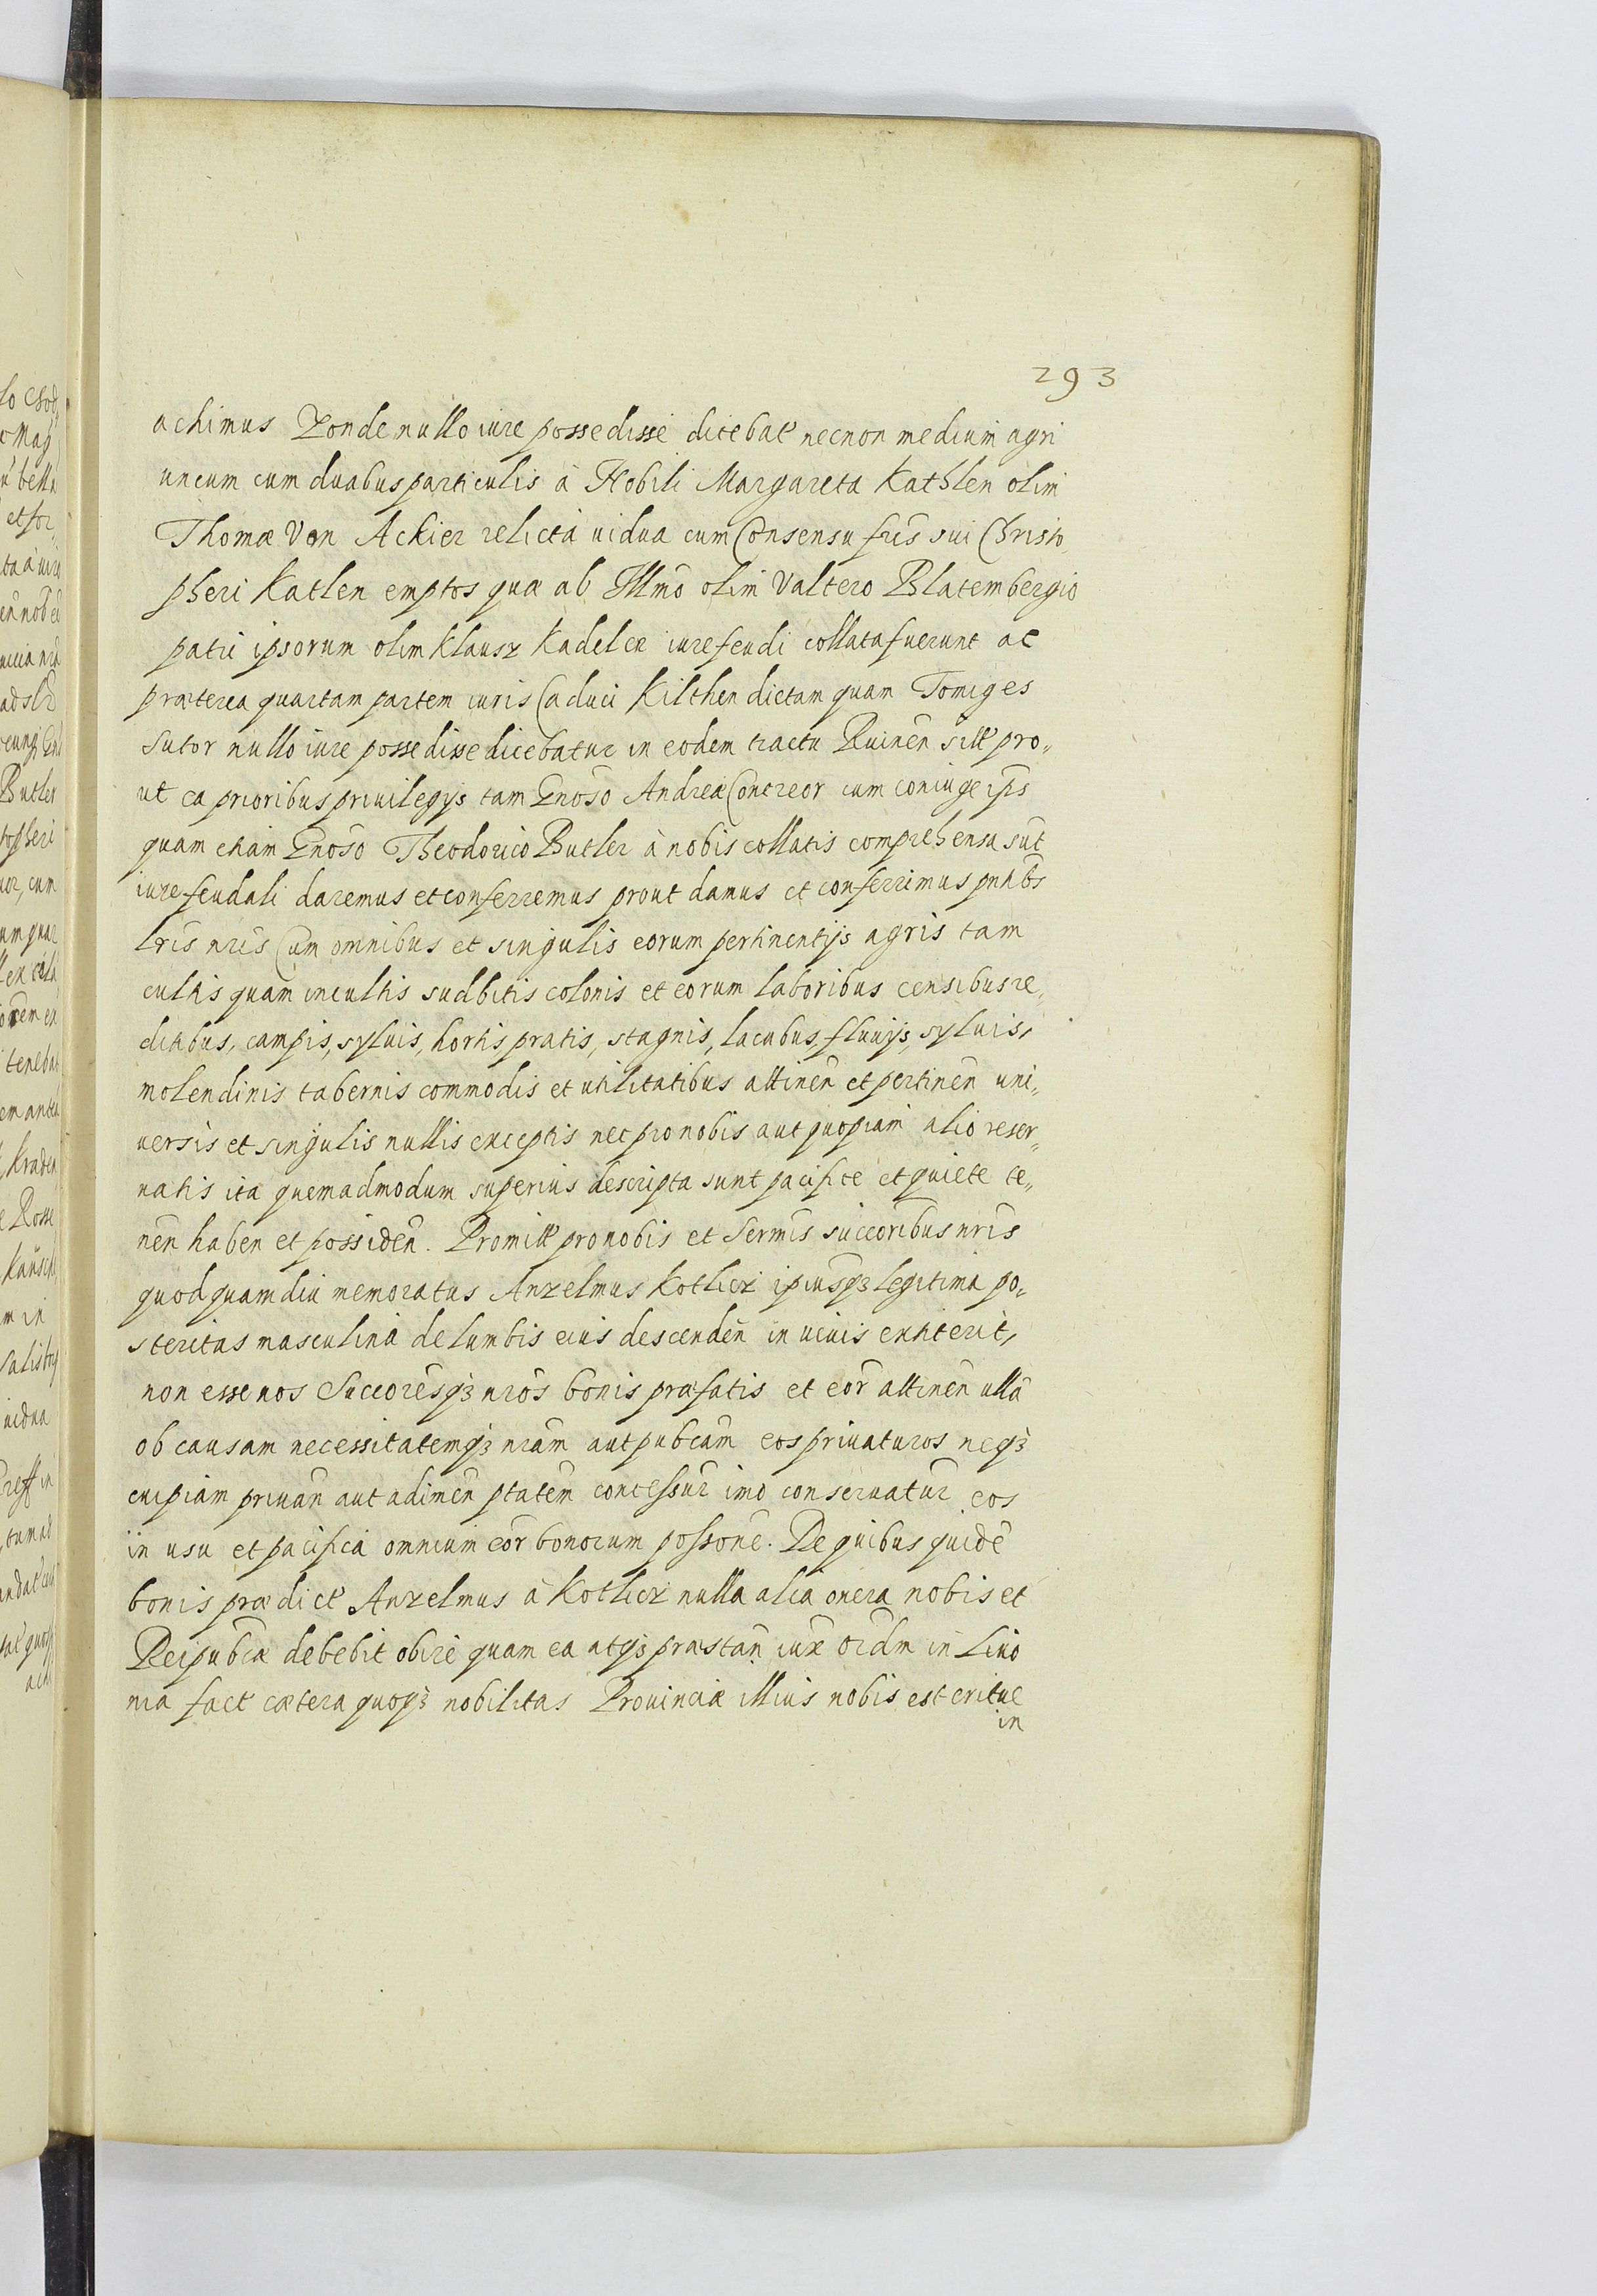 293
achimus Zonde nullo iure possedisse dicebat necnon medium agri
uncum cum duabus particulis à Nobili Margareta Kathlen olim
Thomæ Von Ackier relicta uidua cum Consensu fris sui Christo
pheri Katlen emptos quæ ab Illmo olim Valtero Blatembergio
patri ipsorum olim Klausz Kadelek iure feudi collata fuerunt ac
præterea quartam partem iuris Caduci Kilchen dictam quam Tomiges
Sutor nullo iure possedisse dicebatur in eodem tractu Ruinen sitt pro„
ut ea prioribus priuilegijs tam Gnoso Andreæ Concreor cum coniuge ips
quam etiam Gnoso Theodorico Butler à nobis collatis comprehensa sūt
iure feudali daremus et conferremus prout damus et conferrimus pntibs
lris nris Cum omnibus et singulis eorum pertinentijs agris tam
cultis quam incultis sudbitis colonis et eorum laboribus censibus re„
ditibus, campis, syluis, hortis pratis, stagnis, lacubus, fluuijs, syluis,
molendinis tabernis commodis et utilitatibus attinen et pertinen uni„
uersis et singulis nullis exceptis nec pro nobis aut quopiam alio reser„
uatis ita quemadmodum superius descripta sunt pacifice et quiete te„
nen haben et possiden. Promitt pro nobis et Sermis succoribus nris
quod quamdiu memoratus Anzelmus Kotlicz ipiusqꝫ legitima po„
steritas masculina de lumbis eius descenden in uiuis extiterit,
non esse nos Succoresqꝫ nros bonis præfatis et eor attinen ulla
ob causam necessitatemqꝫ nram aut pubcam eos priuaturos neqꝫ
cuipiam priuan aut adimen ptatem concessur imo conseruatur eos
in usu et pacifica omnium eor bonorum possone. De quibus quide
bonis prædict Anzelmus à Kotlicz nulla alia onera nobis et
Reipubcæ debebit obire quam ea atqꝫ præstan iux ordm in Liuo
nia fact cætera quoqꝫ nobilitas Prouinciæ illius nobis est eritue
in